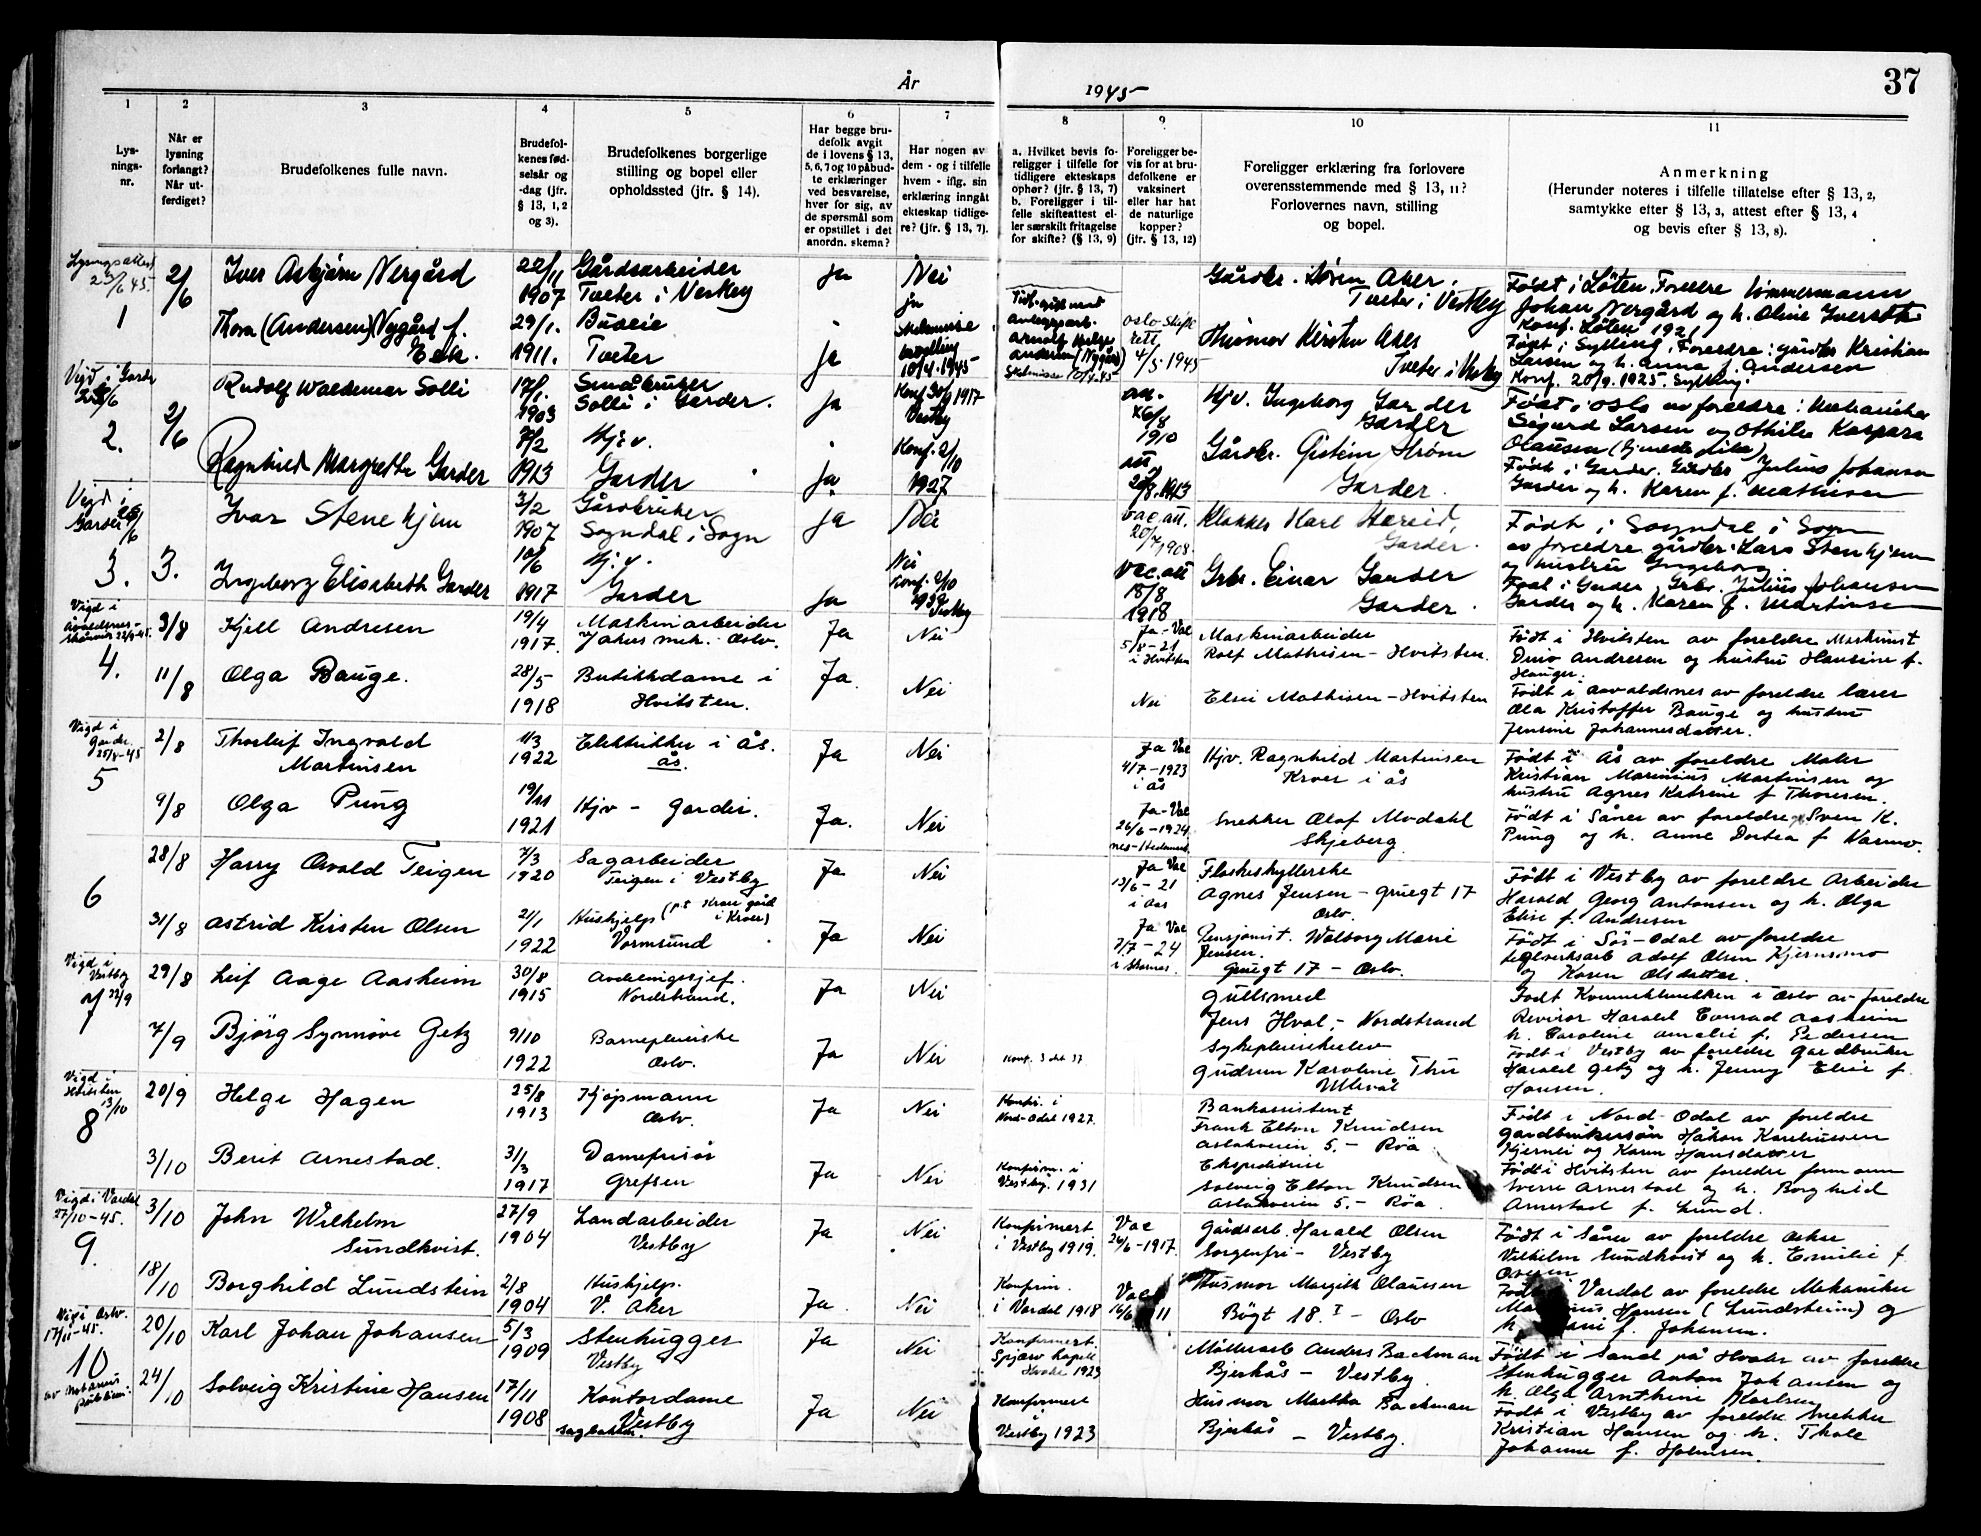 37
År
1945
1
2
3
4
5
6
7
8
9
10
11
Lys-
nings-
nr.
Når er
lysning
forlangt?
Når ut-
ferdiget?
Brudefolkenes fulle navn.
Brudefol-
kenes fød-
selsår og
-dag (jfr.
§ 13, 1, 2
og 3).
Brudefolkenes borgerlige
stilling og bopel eller
opholdssted (jfr. § 14).
Har begge bru-
defolk avgit
de i lovens § 13,
5, 6, 7 og 10 påbud-
te erklæringer
ved besvarelse,
hver for sig, av
de spørsmål som
er opstillet i det
anordn. skema?
Har nogen av
dem - og i tilfelle
hvem - iflg. sin
erklæring inngått
ekteskap tidlige-
re? (jfr. § 13, 7).
a. Hvilket bevis fo-
religger i tilfelle for
tidligere ekteskaps
ophør? (jfr. § 13, 7)
b. Foreligger i til-
felle skifteattest el-
ler særskilt fritagelse
for skifte? (§ 13, 9)
Foreligger be-
vis for at bru-
defolkene er
vaksinert
eller har hat
de naturlige
kopper?
(jfr. § 13, 12)
Foreligger erklæring fra forlovere
overensstemmende med § 13, 11?
Forlovernes navn, stilling
og bopel.
Anmerkning
(Herunder noteres i tilfelle tillatelse efter § 13, 2,
samtykke efter § 13, 3, attest efter § 13, 4
og bevis efter § 13, 8).
Lysningsattest
23/6 45.
1
2/6
Iver Asbjørn Nergård
22/11
1907
Gårdsarbeider
Tveter i Vestby
ja
Nei
Gårdbr. Søren Aker,
Tveter i Vestby
Født i Löten. Foreldre tömmermann
Johan Nergård og h. Oline Iversdtr
Konf. Löten 1921
Thora (Andersen) Nygård f.
Eek.
29/1.
1911.
Buseie
Tveter
ja
ja
Skilsmisse
bevilling
10/4.1945
Arnolf Helge
Andersen (Nygård)
Skilsmisse 10/4-45
Oslo Skifte
rett
4/5 1945
Husmor Kirsten Aker
Tveter i Vestby
Født i Sylling. Foreldre: gårdbr Kristian
Larsen og h. Anna f. Andersen
Konf. 20/9. 1925. Sylling.
Vigd i Garder
2.
2/6
Rudolf Waldemar Solli
17/1.
1903
Småbruker
Solli i Garder.
ja
Konf 30/9 1917
Vestby
att.
16/8
1910
Hjv. Ingeborg Garder
Garder
Født i Oslo av foreldre: Mekaniker
Sigurd Larsen og Othilie Kaspara
Olausen
Ragnhild Margrethe Garder
7/2
1913
Hjv.
Garder
ja
Konf. 2/10
1927
att
20/8. 1913
Gårdbr. Gisteim Strøm
Garder.
Født i Garder. Gårdbr Julius Johansen
Garder og h. Karen f. Mathisen
Vigd i
Garder 23/6
3.
3.
Ivar Stenehjem
3/2
1907
Gårdbruker
Sogndal i Sogn
ja
Nei
vac. att.
20/7 1908.
Klokker Karl Hereid,
Garder.
Født i Sogndal i Sogn
av foreldre gårdbr. Lars Stenehjem
og hustru Ingeborg.
Ingeborg Elisabeth Garder
10/6
1917
Hj.v.
Garder
ja
Nei
Konf. 2/10
1932
Vestby
Vac. att
18/8
1918
Grbr. Einar Garder
Garder.
Født i Garder. Grbr. Julius Johansen
Garder og h. Karen f. Martinsen
Vigd i
Avaldsnes-
4.
3/8
Kjell Andresen
19/4
1917.
Maskinarbeider
Jahus mek. Oslo.
Ja
Nei
Ja - Vac
5/8-21
i Hvitsten
Maskinarbeider
Rolf Mathisen - Hvitsten.
Født i Hvitsten av foreldre Maskinist
Andresen og hustru Hansine f.
Hauger.
11/8
Olga Bauge.
28/5
1918
Butikkdame i
Hvitsten.
Ja.
Nei
Nei
Elsie Mathisen - Hvitsten
Født i Aavaldsnes av foreldre lærer
Ola Kristoffer Bauge og hustru
Jensine Johannesdatter.
Vigd i
Garder
25/8-45
5
2/8
Thorleif Ingvald
Martinsen
1/3
1922
Elektriker i Ås.
Ås.
Ja
Nei
Ja Vac
4/7-1923
i Ås
Hjv. Ragnhild Martinsen
Kroer i Ås
Født i Ås av foreldre Maler
Kristian Marinius Martinsen og
hustru Agnes Katrine f Thoresen.
9/8
Olga Pung
19/11
1921
Hjv - Garder.
Ja.
Nei
Ja - Vac
26/6-1924
nes-Hedemark
Snekker Olaf Modahl
Skjeberg.
Født i Såner av foreldre Sven K.
Pung og h. Anne Dortea f Karmo.
6
28/8
Harry Osvald Teigen
7/3
1920
Sagarbeider
Teigen i Vestby
Ja
Nei
Ja Vac
13/6-21
i Aas
Flaskeskyllerske
Agnes Jensen - Gruegt 17
Oslo.
Født i Vestby av foreldre Arbeider
Harald Georg Antonsen og h. Olga
Elise f. Andresen
31/8
Astrid Kirsten Olsen
21/1
1922
Hushjelp (p.t. Kroer gård
i Kroer)
Vormsund
Ja
Nei
Ja Vac
7/7-24
i Skarnes.
Pensjonist. Walborg Marie
Jensen.
Gruegt 17 - Oslo.
Født i Sör-Odal av foreldre
teglverksarb Adolf Olsen Kjernsmo
og Karen Olsdatter.
Vigd i
Vestby
22/9
7
29/8
Leif Aage Aasheim
30/8
1915
Avdelingssjef.
Nordstrand.
Ja
Nei
Gullsmed
Jens Hval, - Nordstrand
Født Kommekloskken i Oslo av foreldre
Revisor Harald Conrad Aasheim
h. Caroline Amalie f. Pedersen
7/9
Bjørg Synnøve Getz
9/10
1922
Barnepleierske
Oslo.
Ja
Nei
Konf. 3 okt 37
Sykepleierskelev
Gudrun Karoline Thu
Ullevål
Født i Vestby av foreldre gardbruker
Harald Getz og h. Jenny Elise f.
Hansen.
Vigd i
Hvitsten
13/10
8
20/9
Helge Hagen
25/8
1913
Kjøpmann
Oslo.
Ja
Nei
Konfr. i
Nord-Odal 1927.
Bankassistent
Frank Elton Knudsen
Aslakveien 5. - Röa
Født i Nord-Odal av foreldre
gardbrukersön Håkon Kareliussen
Kjernli og Karen Hansdatter
3/10
Berit Arnestad.
31/3
1917
Damefrisör
Grefsen
Ja
Nei
Konfirm. i
Vestby. 1931
Ekspeditrise
Solveig Elton Knudsen
Aslakveien 5. - Röa
Født i Hvitsten av foreldre formann
Sverre Arnestad og h. Borghild
Arnestad f. Lund.
Vigd i Vardal
27/10-45.
9.
3/10
John Wilhelm
Sundkvist.
27/9
1904
Landarbeider
Vestby
Ja
Nei
Konfirmert
i Vestby 1919.
Vac
26/6-1917.
Gårdsarb. Harald Olsen
Sorgenfri - Vestby
Født i Såner av foreldre
Vilhelm Sundkvist og h. Emilie f.
18/10
Borghild Lundstein
2/8
1904
Hushjelp.
V. Aker
Ja
Nei
Konfirm.
i Vardal 1918
Vac
16/6 11
Husmor Margith Olaussen
Bögt 18. I - Oslo
Født i Vardal av foreldre Mekaniker
Hansen (Lundstein) og
h. f. Johansen.
Vigd i Oslo.
17/11-45.
10
av Notarius
publicus.
20/10
Karl Johan Johansen
5/3
1909
Stenhugger
Vestby
Ja
Nei
Konfirmert.
Spjær kapell
Hvaler 1923
Möllerarb Anders Backman
Bjerkås - Vestby.
Født i Sand på Hvaler av foreldre
Stenhugger Anton Johansen og
h. Olga Arnthine Karlsen
24/10
Solveig Kristine Hansen
17/11
1908
Kontordame
Vestby
sagbakken.
Ja
Nei
Konfirmert
i
Vestby 1923
Husmor Martha Backman
Bjerkås - Vestby.
Født i Vestby av foreldre snekker
Kristian Hansen og h. Thale
Johanne f. Holmsen.